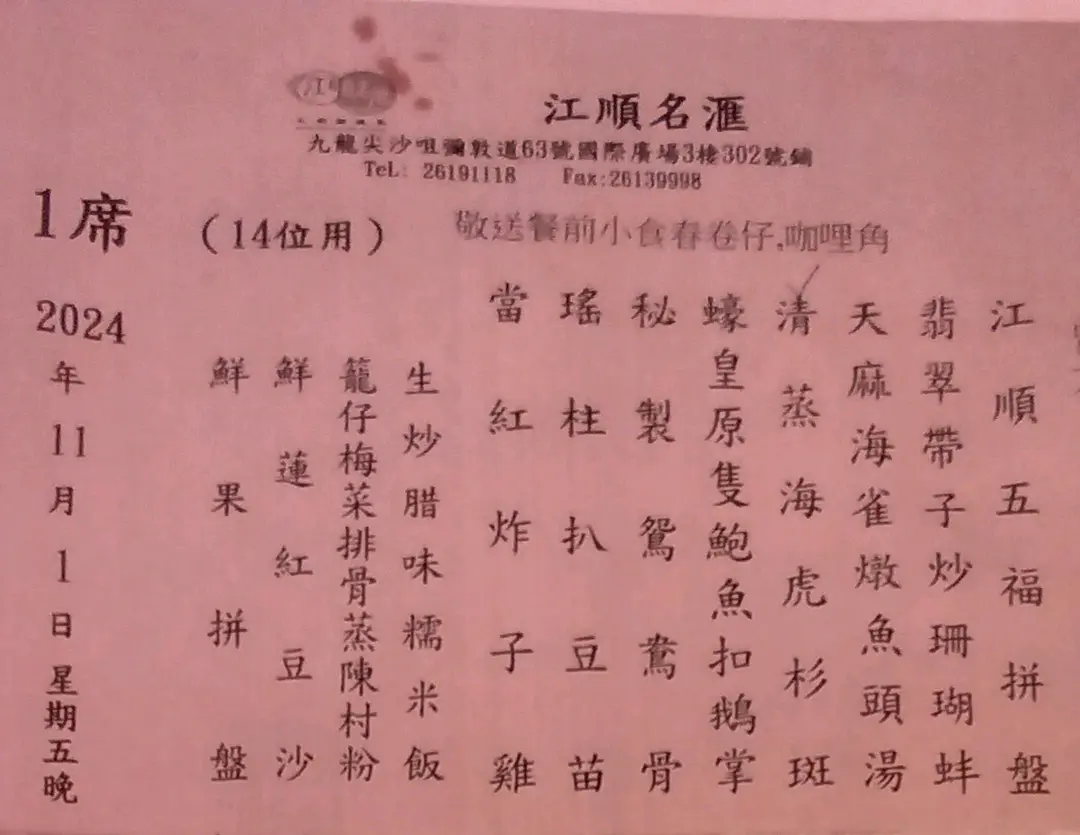 江順名滙
九龍尖沙咀彌敦道63號國際廣場3樓302號鋪
TeL: 26191118 Fax:26139998
1席 (14位用)
敬送餐前小食春卷仔,咖哩角
江順五福拼盤
翡翠帶子炒珊瑚蚌
天麻海雀燉魚頭湯
清蒸海虎杉斑
蠔皇原隻鮑魚扣鵝掌
秘製鴛鴦骨
瑤柱扒豆苗
當紅炸子雞
生炒腊味糯米飯
籠仔梅菜排骨蒸陳村粉
鮮蓮紅豆沙
鮮果拼盤
2024年11月1日星期五晚